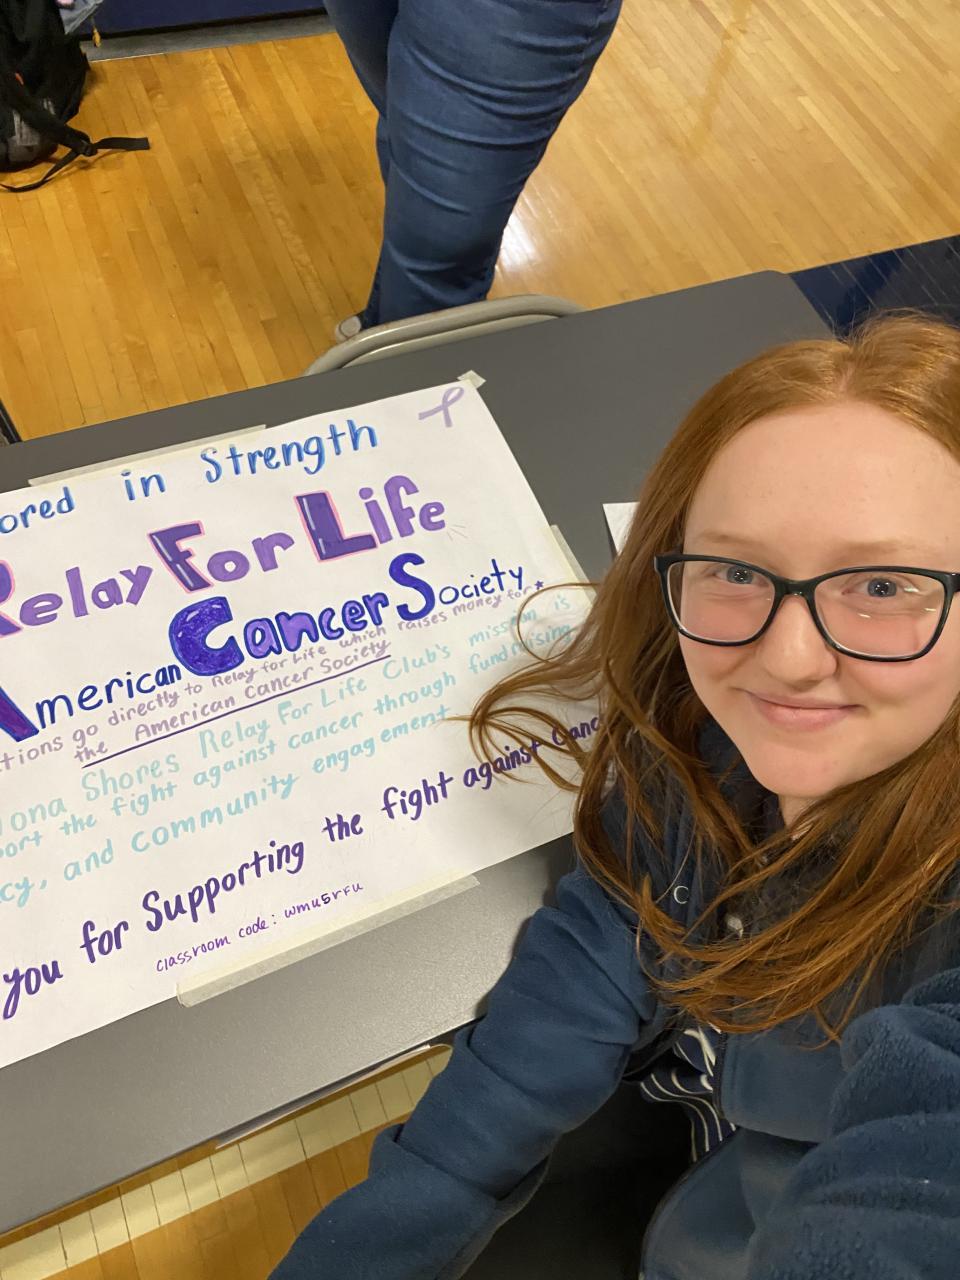 ored in Strength
Relay For Life
American Cancer Society
tions go directly to Relay for Life which raises money for
the American Cancer Society
ona Shores Relay For Life Club's mission is
port the fight against cancer through fundraising
cy, and community engagement
you for Supporting the fight against canc
classroom code: wmu5rfu
C